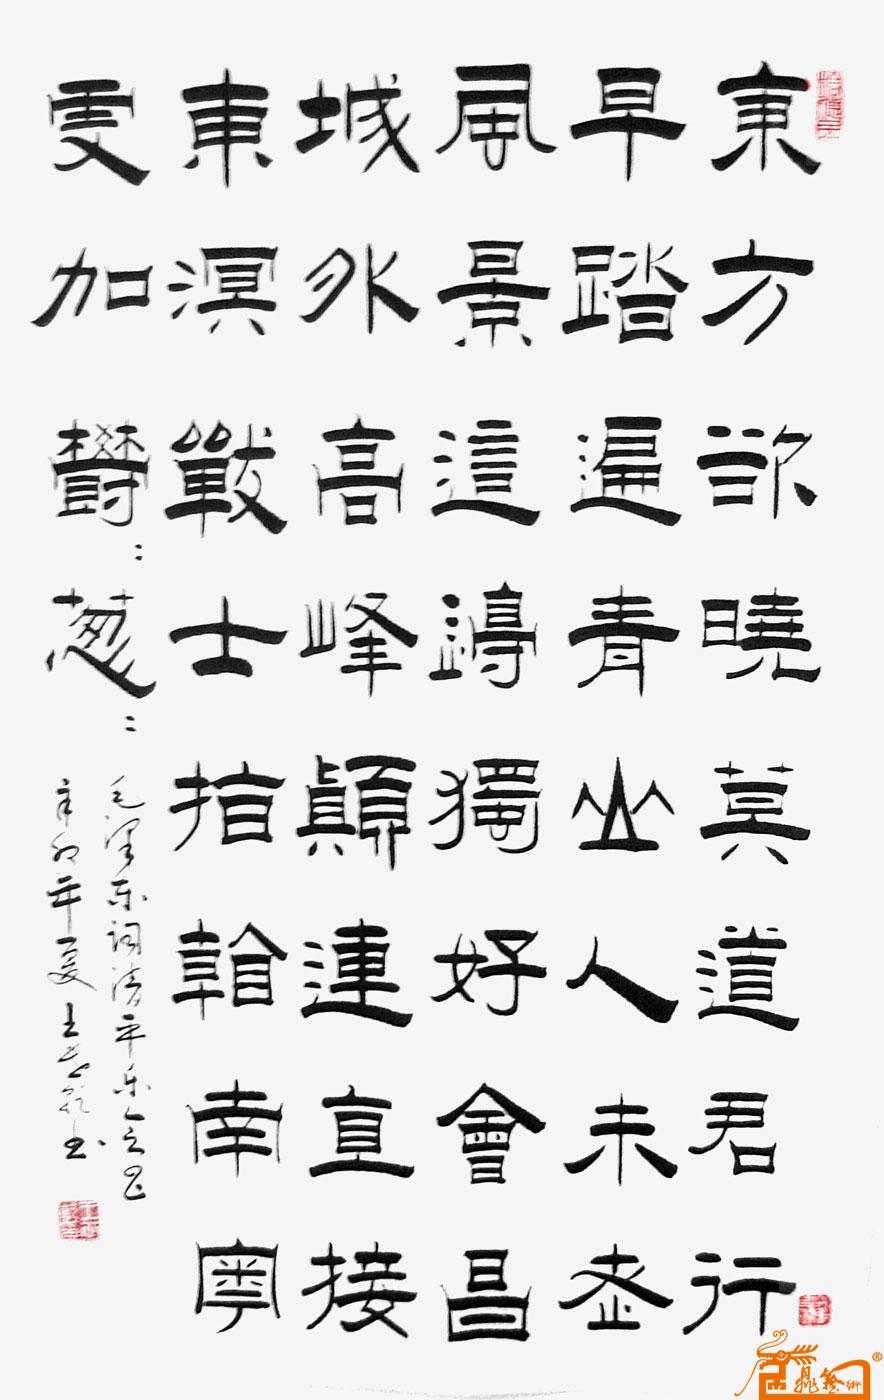 東方欲曉莫道君行
早踏遍青山人未老
風景這邊獨好會昌
城外高峰顛連直接
東溟戰士指看南粵
更加鬱〻葱〻
毛泽东词清平乐会昌
辛卯年夏王书